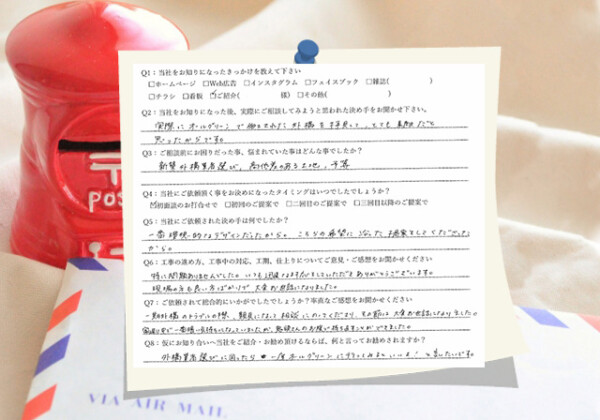 POS
Q1：当社をお知りになったきっかけを教えて下さい
□ホームページ □Web広告 □インスタグラム □フェイスブック □雑誌( )
□チラシ □看板 ☑ご紹介( 様) □その他( )
Q2：当社をお知りになった後、実際にご相談してみようと思われた決め手をお聞かせ下さい。
実際にオールグリーンで施工された外構を拝見して、とても素敵だと
思ったからです。
Q3：ご相談前にお困りだった事、悩まれていた事はどんな事でしたか？
新築外構業者選び、高低差のある土地、予算
Q4：当社にご依頼頂く事をお決めになったタイミングはいつでしたでしょうか？
☑初面談のお打合せで □初回のご提案で □二回目のご提案で □三回目以降のご提案で
Q5：当社にご依頼された決め手は何でしたか？
一番理想的なデザインだったから。こちらの希望に沿った提案をしてくださった
から。
Q6：工事の進め方、工事中の対応、工期、仕上りについてご意見・ご感想をお聞かせください
特に問題ありませんでした。いつも迅速な対応をしていただきありがとうございます。
現場の方も良い方ばかりで大変お世話になりました。
Q7：ご依頼されて総合的にいかがでしたでしょうか？率直なご感想をお聞かせください
一期外構のトラブルの際、親身になって相談にのってくださり、その節は大変お世話になりました。
Q8：仮にお知り合いへ当社をご紹介・お勧め頂けるならば、何と言ってお勧めされますか？
外構業者選びに困ったら 一度オールグリーンに行ってみるといいよ！と言いたいです。
VIA AIR MAIL